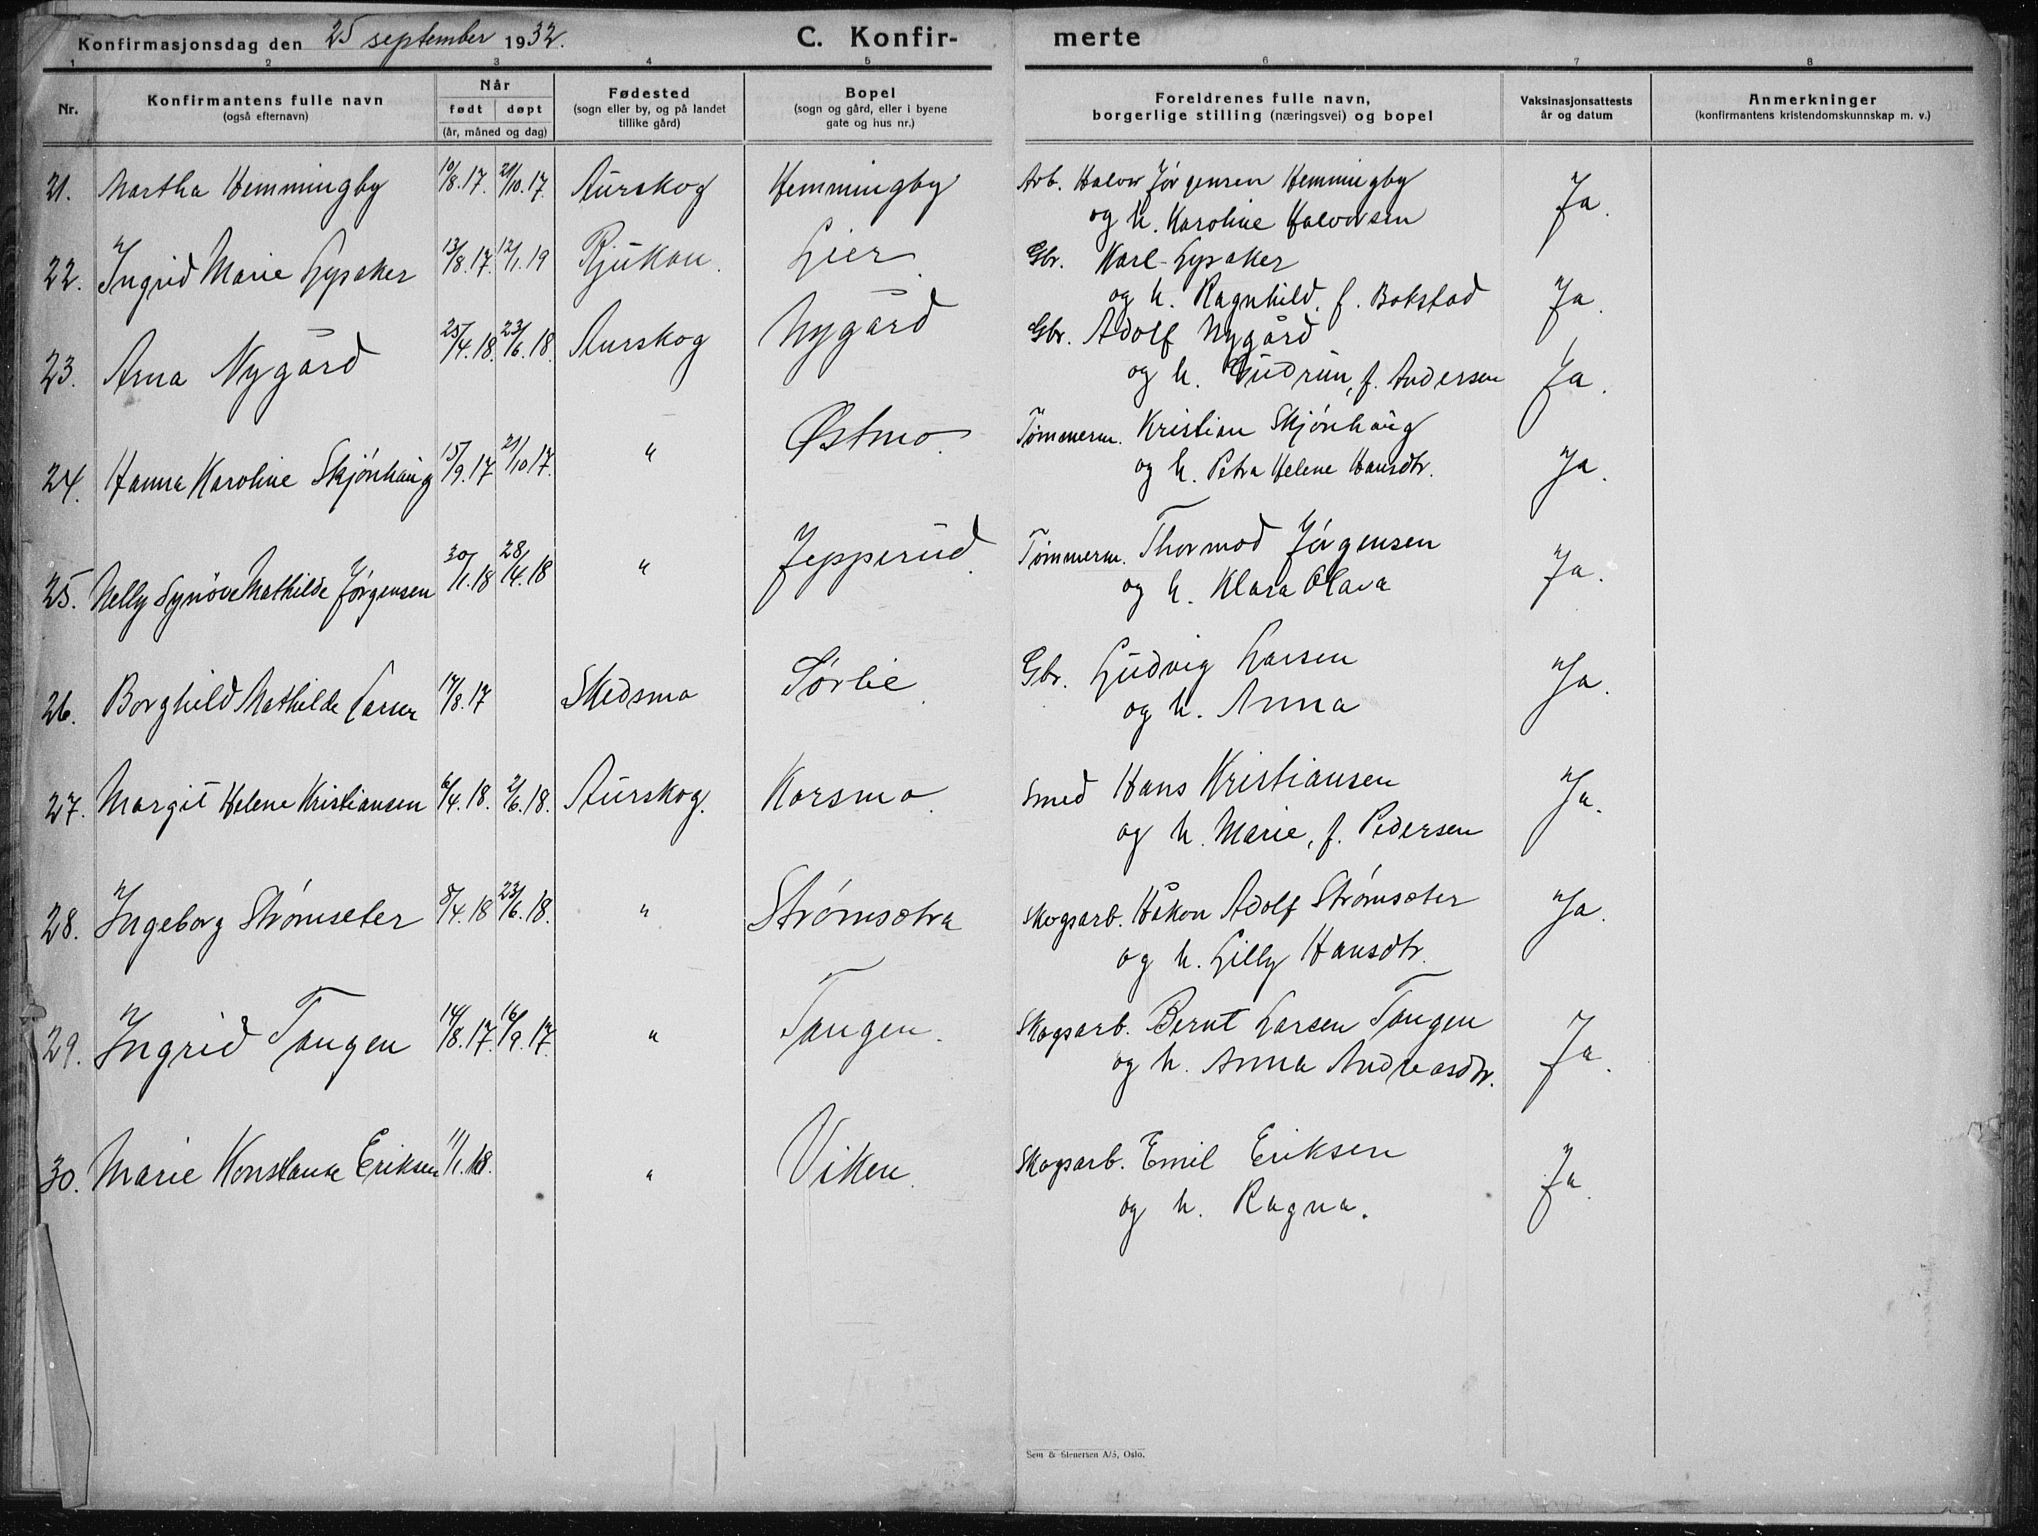 Konfirmasjonsdag den 25 september 1932. C. Konfir- merte
1 2 3 4 5 6 7 8
Nr. Konfirmantens fulle navn (også efternavn) Når født døpt (år, måned og dag) Fødested (sogn eller by, og på landet tillike gård) Bopel (sogn og gård, eller i byene gate og hus nr.) Foreldrenes fulle navn, borgerlige stilling (næringsvei) og bopel Vaksinasjonsattests år og datum Anmerkninger (konfirmantens kristendomskunnskap m. v.)
21. Martha Hemmingby 10/8.17. 21/10.17. Aurskog Hemmingby Arb. Halvor Jørgensen Hemmingby
og h. Karoline Halvorsen Ja.
22. Ingrid Marie Lysaker 13/8.17. 12/1.19 Rjukan. Lier. Gbr. Karl Lysaker
og h. Ragnhild, f. Bokstad Ja.
23. Arna Nygård 25/4.18. 23/6.18. Aurskog Nygård Gbr. Adolf Nygård
og h. Gudrun, f. Andersen Ja.
24. Hanna Karoline Skjønhaug 15/9.17. 21/10.17. " Østmo. Tømmerm. Kristian Skjønhaug
og h. Petra Helene Hansdtr. Ja.
25. Nelly Synøve Mathilde Jørgensen 30/1.18 28/4.18 " Jepperud. Tømmerm. Thormod Jørgensen
og h. Klara Olava Ja.
26. Borghild Mathilde Larsen 17/8.17 Skedsmo Sørlie. Gbr. Ludvig Larsen
og h. Anna Ja.
27. Margit Helene Kristiansen 6/4.18. 2/6.18. Aurskog. Korsmo. Smed Hans Kristiansen
og h. Marie, f. Pedersen Ja.
28. Ingeborg Strømseter 8/4.18 23/6.18. " Strømsætra Skogsarb. Håkon Adolf Strømsæter
og h. Lilly Hansdtr. Ja.
29. Ingrid Tangen 14/8.17. 16/9.17. " Tangen. Skogsarb. Bernt Larsen Tangen
og h. Anna Andreasdtr. Ja.
30. Marie Konstanse Eriksen 11/1.18. " Viken. Skogsarb. Emil Eriksen
og h. Ragna. Ja.
Sem & Stenersen A/S, Oslo.